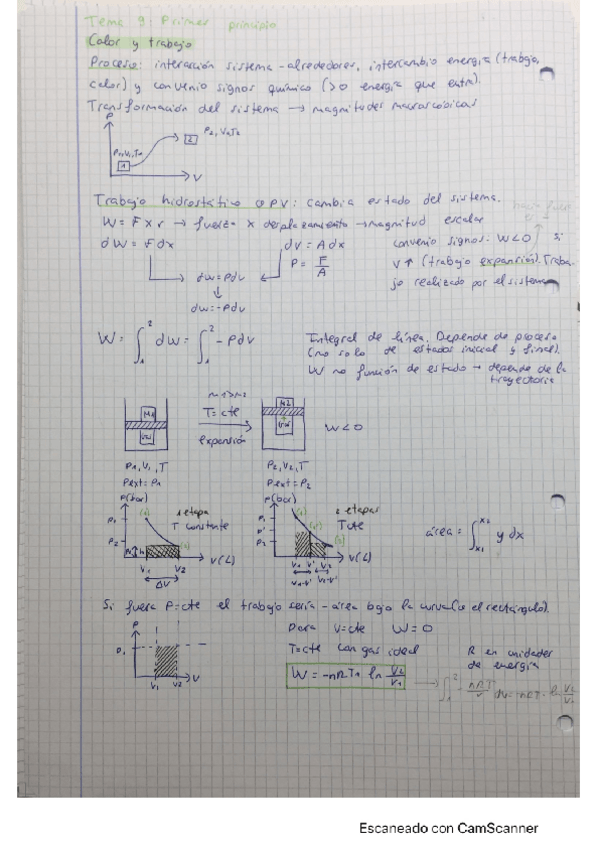 Tema 9: Primer principio
Calor y trabajo
Proceso: interacción sistema-alrededores, intercambio energía (trabajo,
calor) y convenio signos químico (>0 energía que entra).
Transformación del sistema → magnitudes macroscópicas
P
P1,V1,T1
1
2
P2,V2,T2
V
Trabajo hidrostático o PV: cambia estado del sistema.
W = F x r → fuerza x desplazamiento → magnitud escalar
dW = Fdx
dV = Adx
P = F/A
dw = Pdv
↓
dw = -Pdv
convenio signos: W<0 si
V↑ (trabajo expansión). Traba-
jo realizado por el sistema
W = ∫₁² dw = ∫₁² -Pdv
Integral de línea. Depende de proceso
(no solo de estados inicial y final).
W no función de estado → depende de la
trayectoria
M1
M1>M2
T=cte
expansión
M2
W<0
P1,V1,T
Pext=P1
P2,V2,T
Pext=P2
P(bar)
1 etapa
T constante
P1
P2
V1
V2
V(L)
ΔV
P(bar)
2 etapas
T cte
P1
P'
P2
V1
V'
V2
V(L)
V1-V'
V2-V'
área = ∫ₓ₁ˣ² y dx
Si fuera P=cte el trabajo sería -área bajo la curva (o el rectángulo).
P
P1
V1
V2
V
Para V=cte W=0
T=cte con gas ideal
W = -nRT1 ln V2/V1
R en unidades
de energía
→ ∫₁² - nRT/V dv = -nRT · ln V2/V1
Escaneado con CamScanner